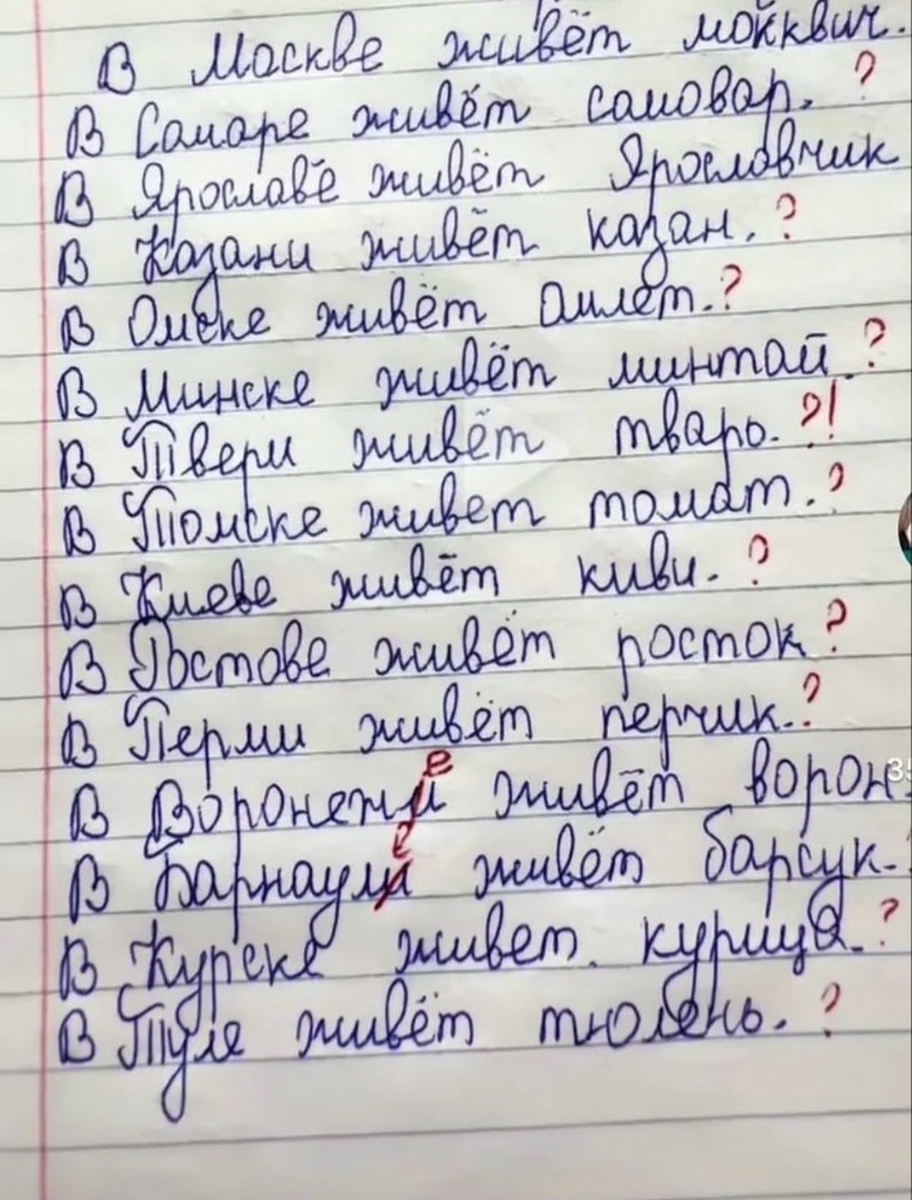 В Москве живёт мокквич.
В Самаре живёт самовар. ?
В Ярославе живёт Ярославчик
В Казани живёт казан. ?
В Омске живёт Омлет. ?
В Минске живёт минтай. ?
В Твери живёт тварь. ?!
В Томске живет томат. ?
В Киеве живёт киви. ?
В Ростове живёт росток ?
В Перми живёт перчик. ?
е
В Воронежи живёт ворон
е
В Барнаули живёт барсук.
В Курске живет курица. ?
В Туле живёт тюлень. ?